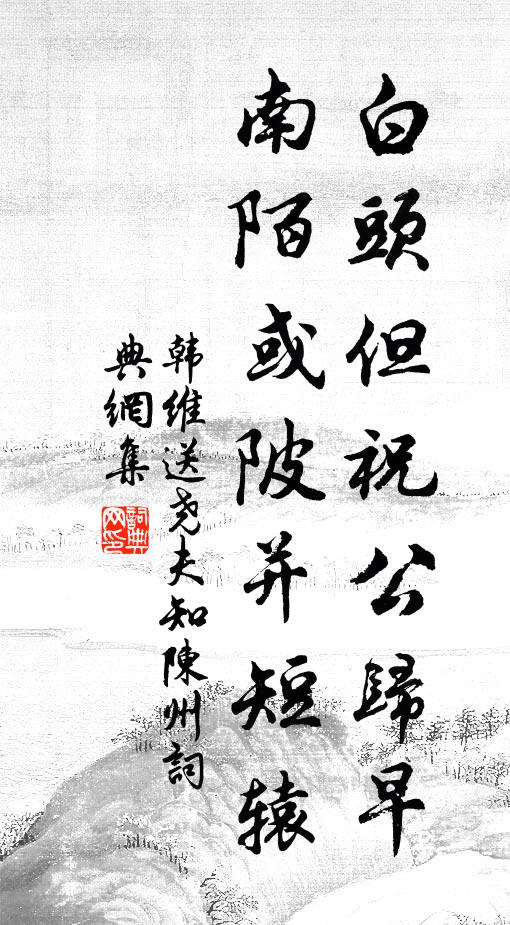 白頭但祝公歸早
南陌或陂并短辕
韩維送尧夫知陳州詞
典網集
詞典網印